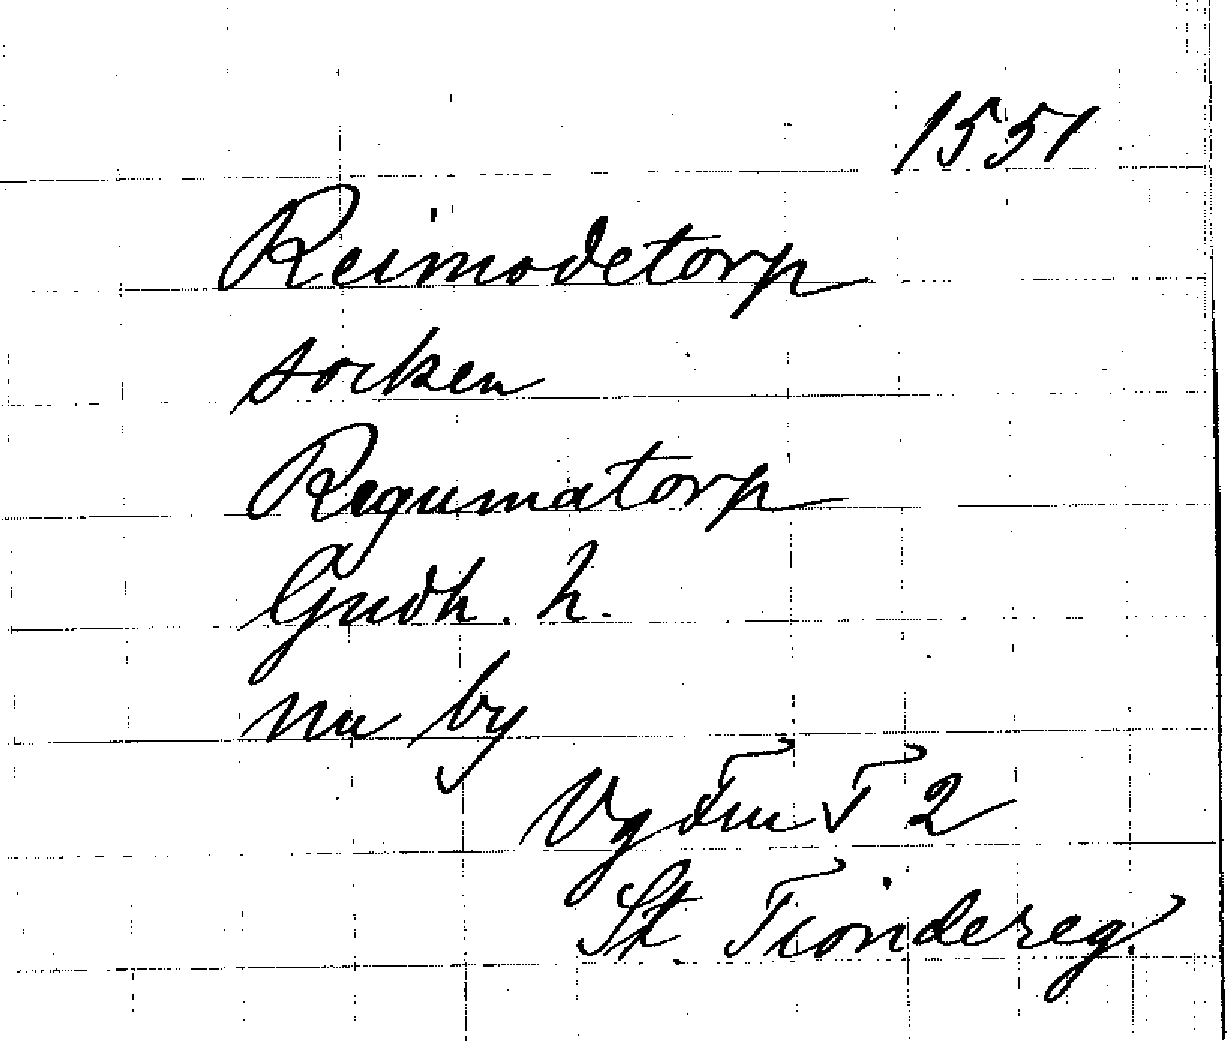 1551
Reimodetorp
socken
Regumatorp
Gudh. h.
nu by
Vg Tiu T 2
St. Tiondereg.